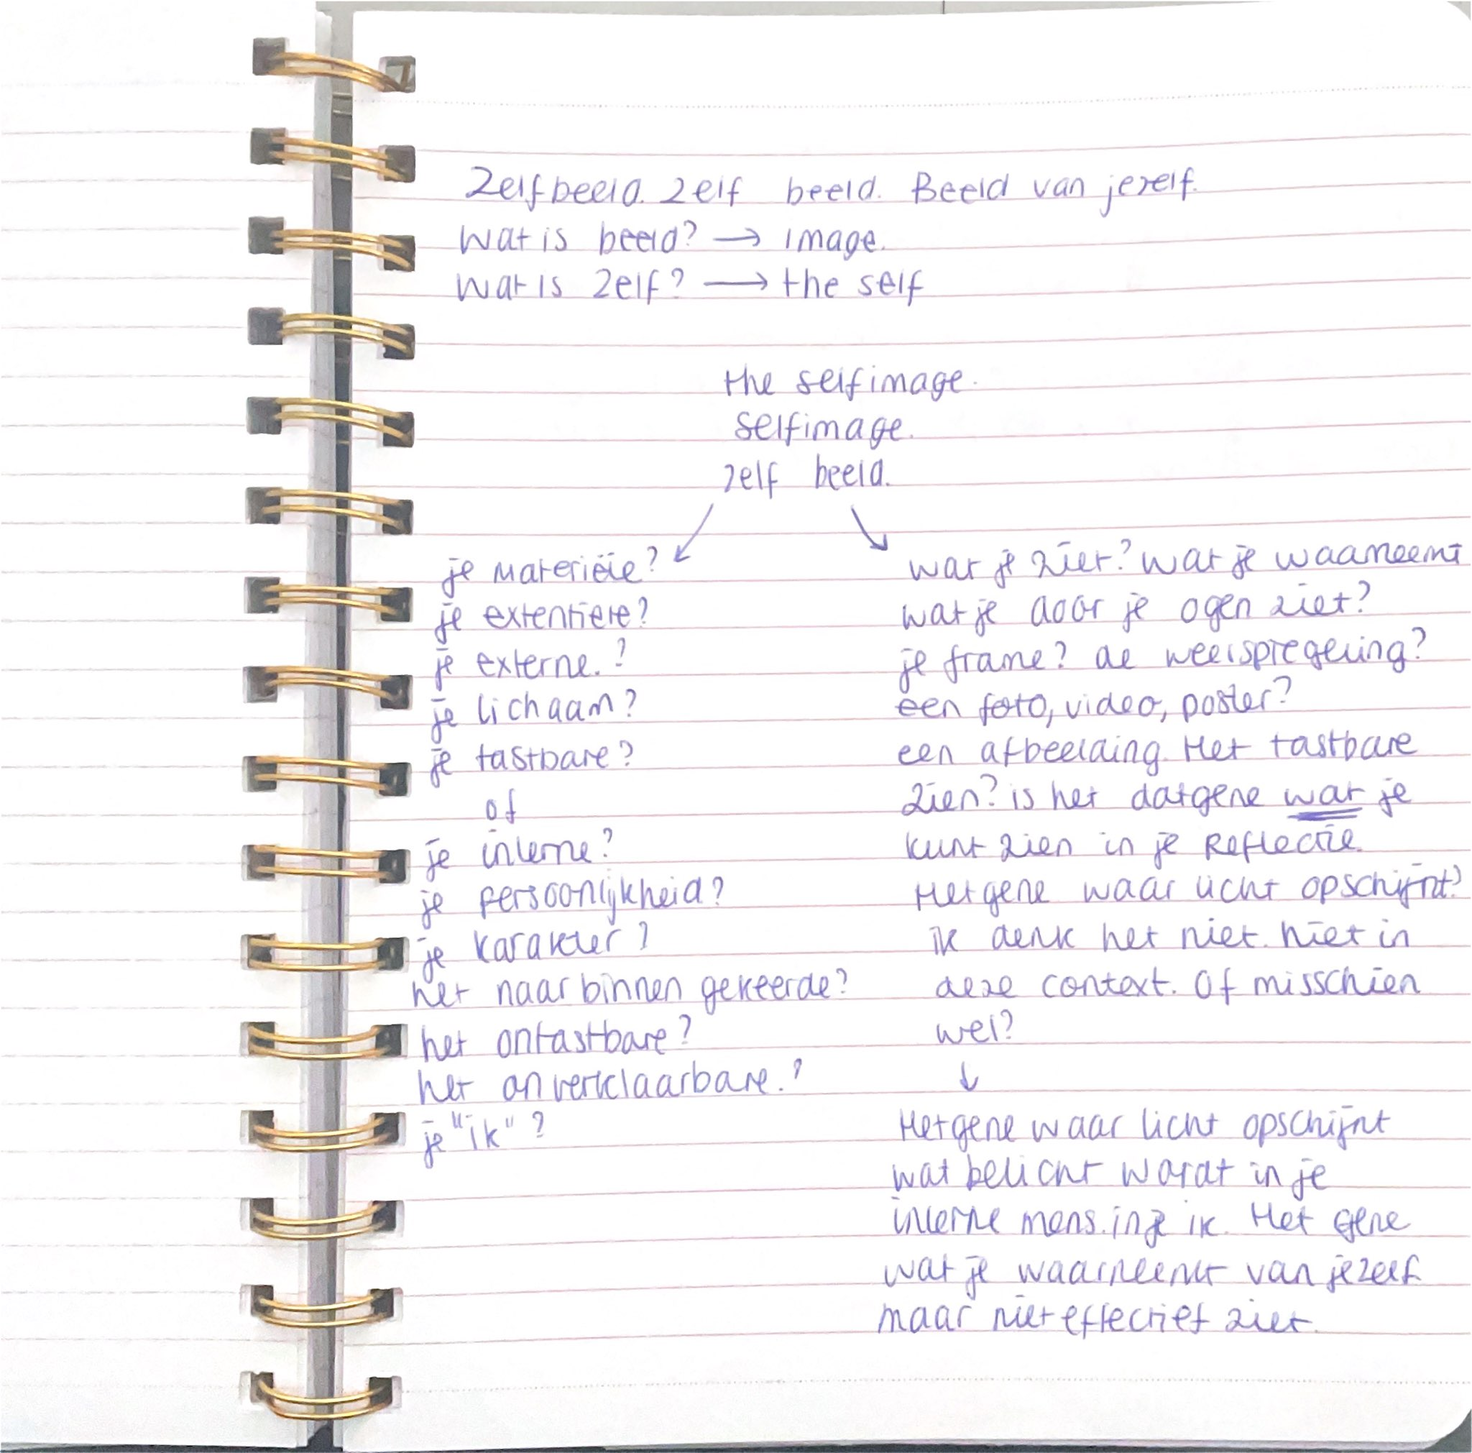 Zelfbeeld. Zelf beeld. Beeld van jezelf.
Wat is beeld? → image.
Wat is Zelf? → the self
the selfimage.
selfimage.
zelf beeld.
je materiële?
je extentiere?
je externe.?
je lichaam?
je tastbare?
of
je interne?
je persoonlijkheid?
je karakter?
het naar binnen gekeerde?
het ontastbare?
het onverklaarbare.?
je "ik"?
wat je ziet? wat je waarneemt
wat je door je ogen ziet?
je frame? de weerspiegeling?
een foto, video, poster?
een afbeelding. Het tastbare
zien? is het datgene wat je
kunt zien in je Reflectie.
Hetgene waar licht opschijnt?
ik denk het niet. niet in
deze context. Of misschien
wel?
↓
Hetgene waar licht opschijnt
wat belicht wordt in je
interne mens. in je ik. Het gene
wat je waarneemt van jezelf
maar niet effectief ziet.